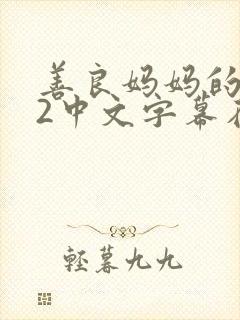 善良妈妈的
2中文字幕
轻暮九九